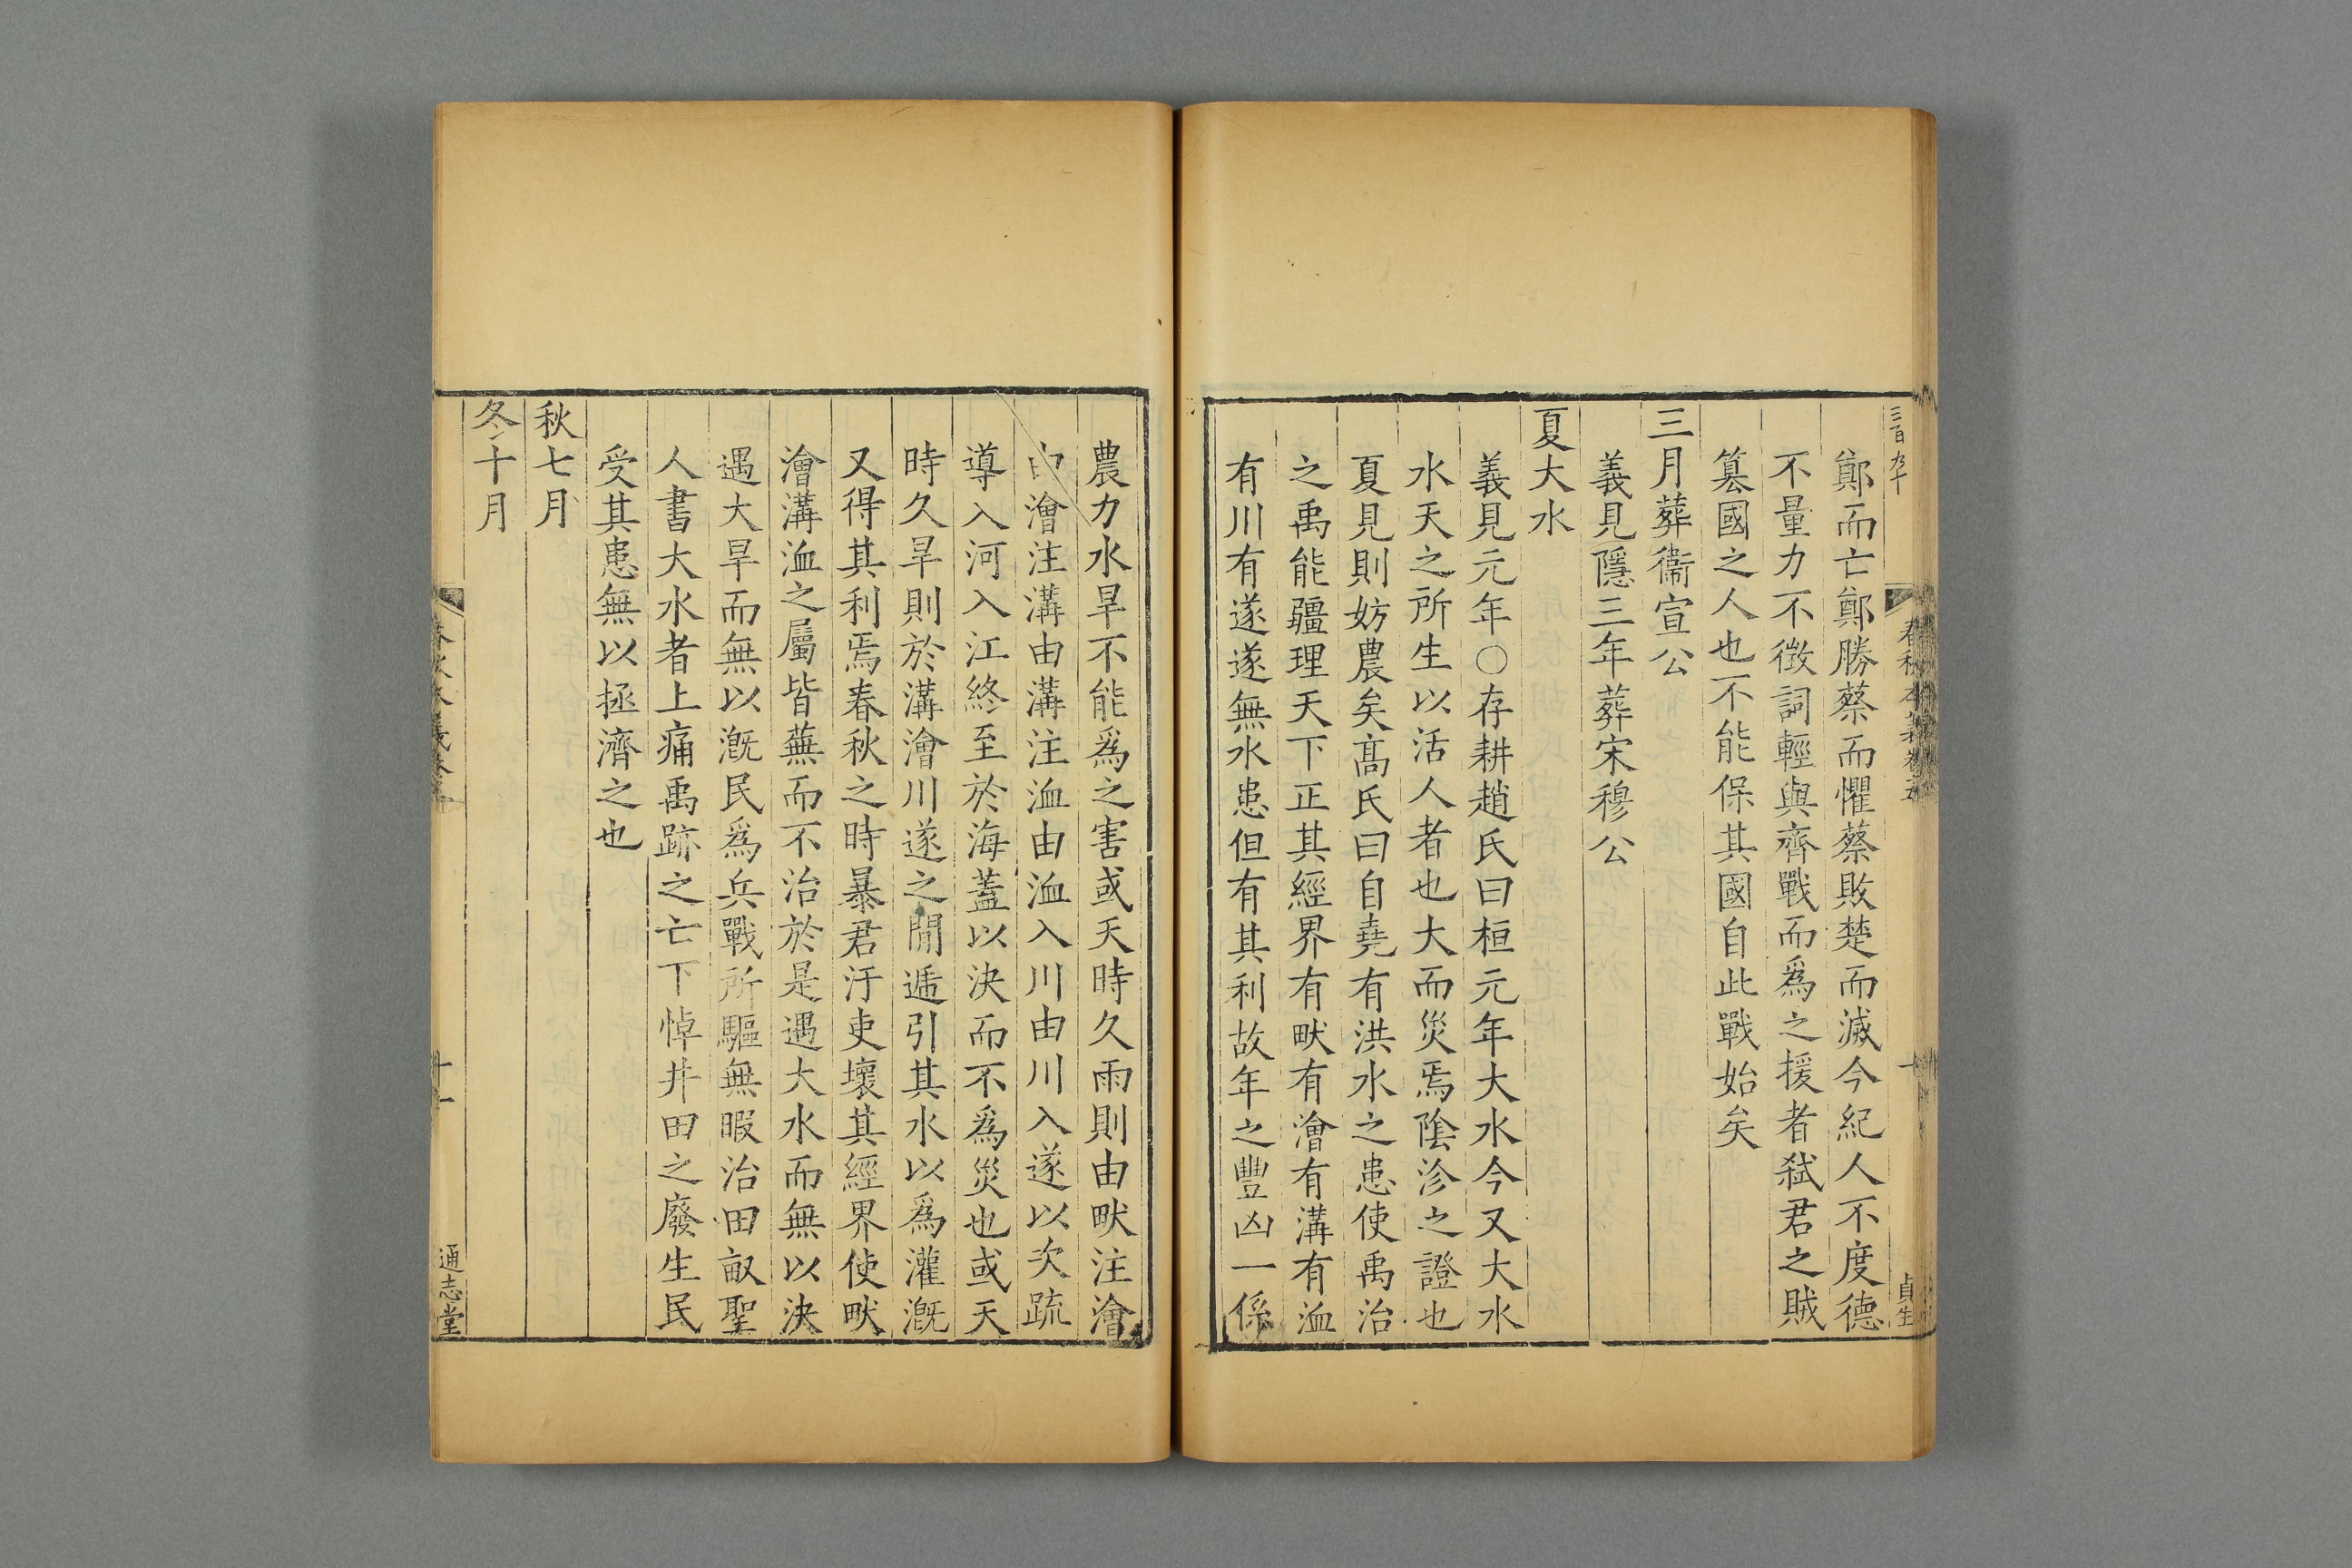 三百九十
春秋本義卷五
十
貞生
鄭而亡鄭勝蔡而懼蔡敗楚而滅今紀人不度德
不量力不徴詞輕與齊戰而爲之援者弑君之賊
篡國之人也不能保其國自此戰始矣
三月葬衞宣公
義見隱三年葬宋穆公
夏大水
義見元年○存耕趙氏曰桓元年大水今又大水
水天之所生以活人者也大而災焉陰沴之證也
夏見則妨農矣髙氏曰自堯有洪水之患使禹治
之禹能疆理天下正其經界有畎有澮有溝有洫
有川有遂遂無水患但有其利故年之豐凶一係
農力水旱不能爲之害或天時久雨則由畎注澮
由澮注溝由溝注洫由洫入川由川入遂以次疏
導入河入江終至於海蓋以決而不爲災也或天
時久旱則於溝澮川遂之閒逓引其水以爲灌漑
又得其利焉春秋之時暴君汙吏壞其經界使畎
澮溝洫之屬皆蕪而不治於是遇大水而無以決
遇大旱而無以漑民爲兵戰所驅無暇治田畝聖
人書大水者上痛禹跡之亡下悼井田之廢生民
受其患無以拯濟之也
秋七月
冬十月
春秋本義卷
十一
通志堂